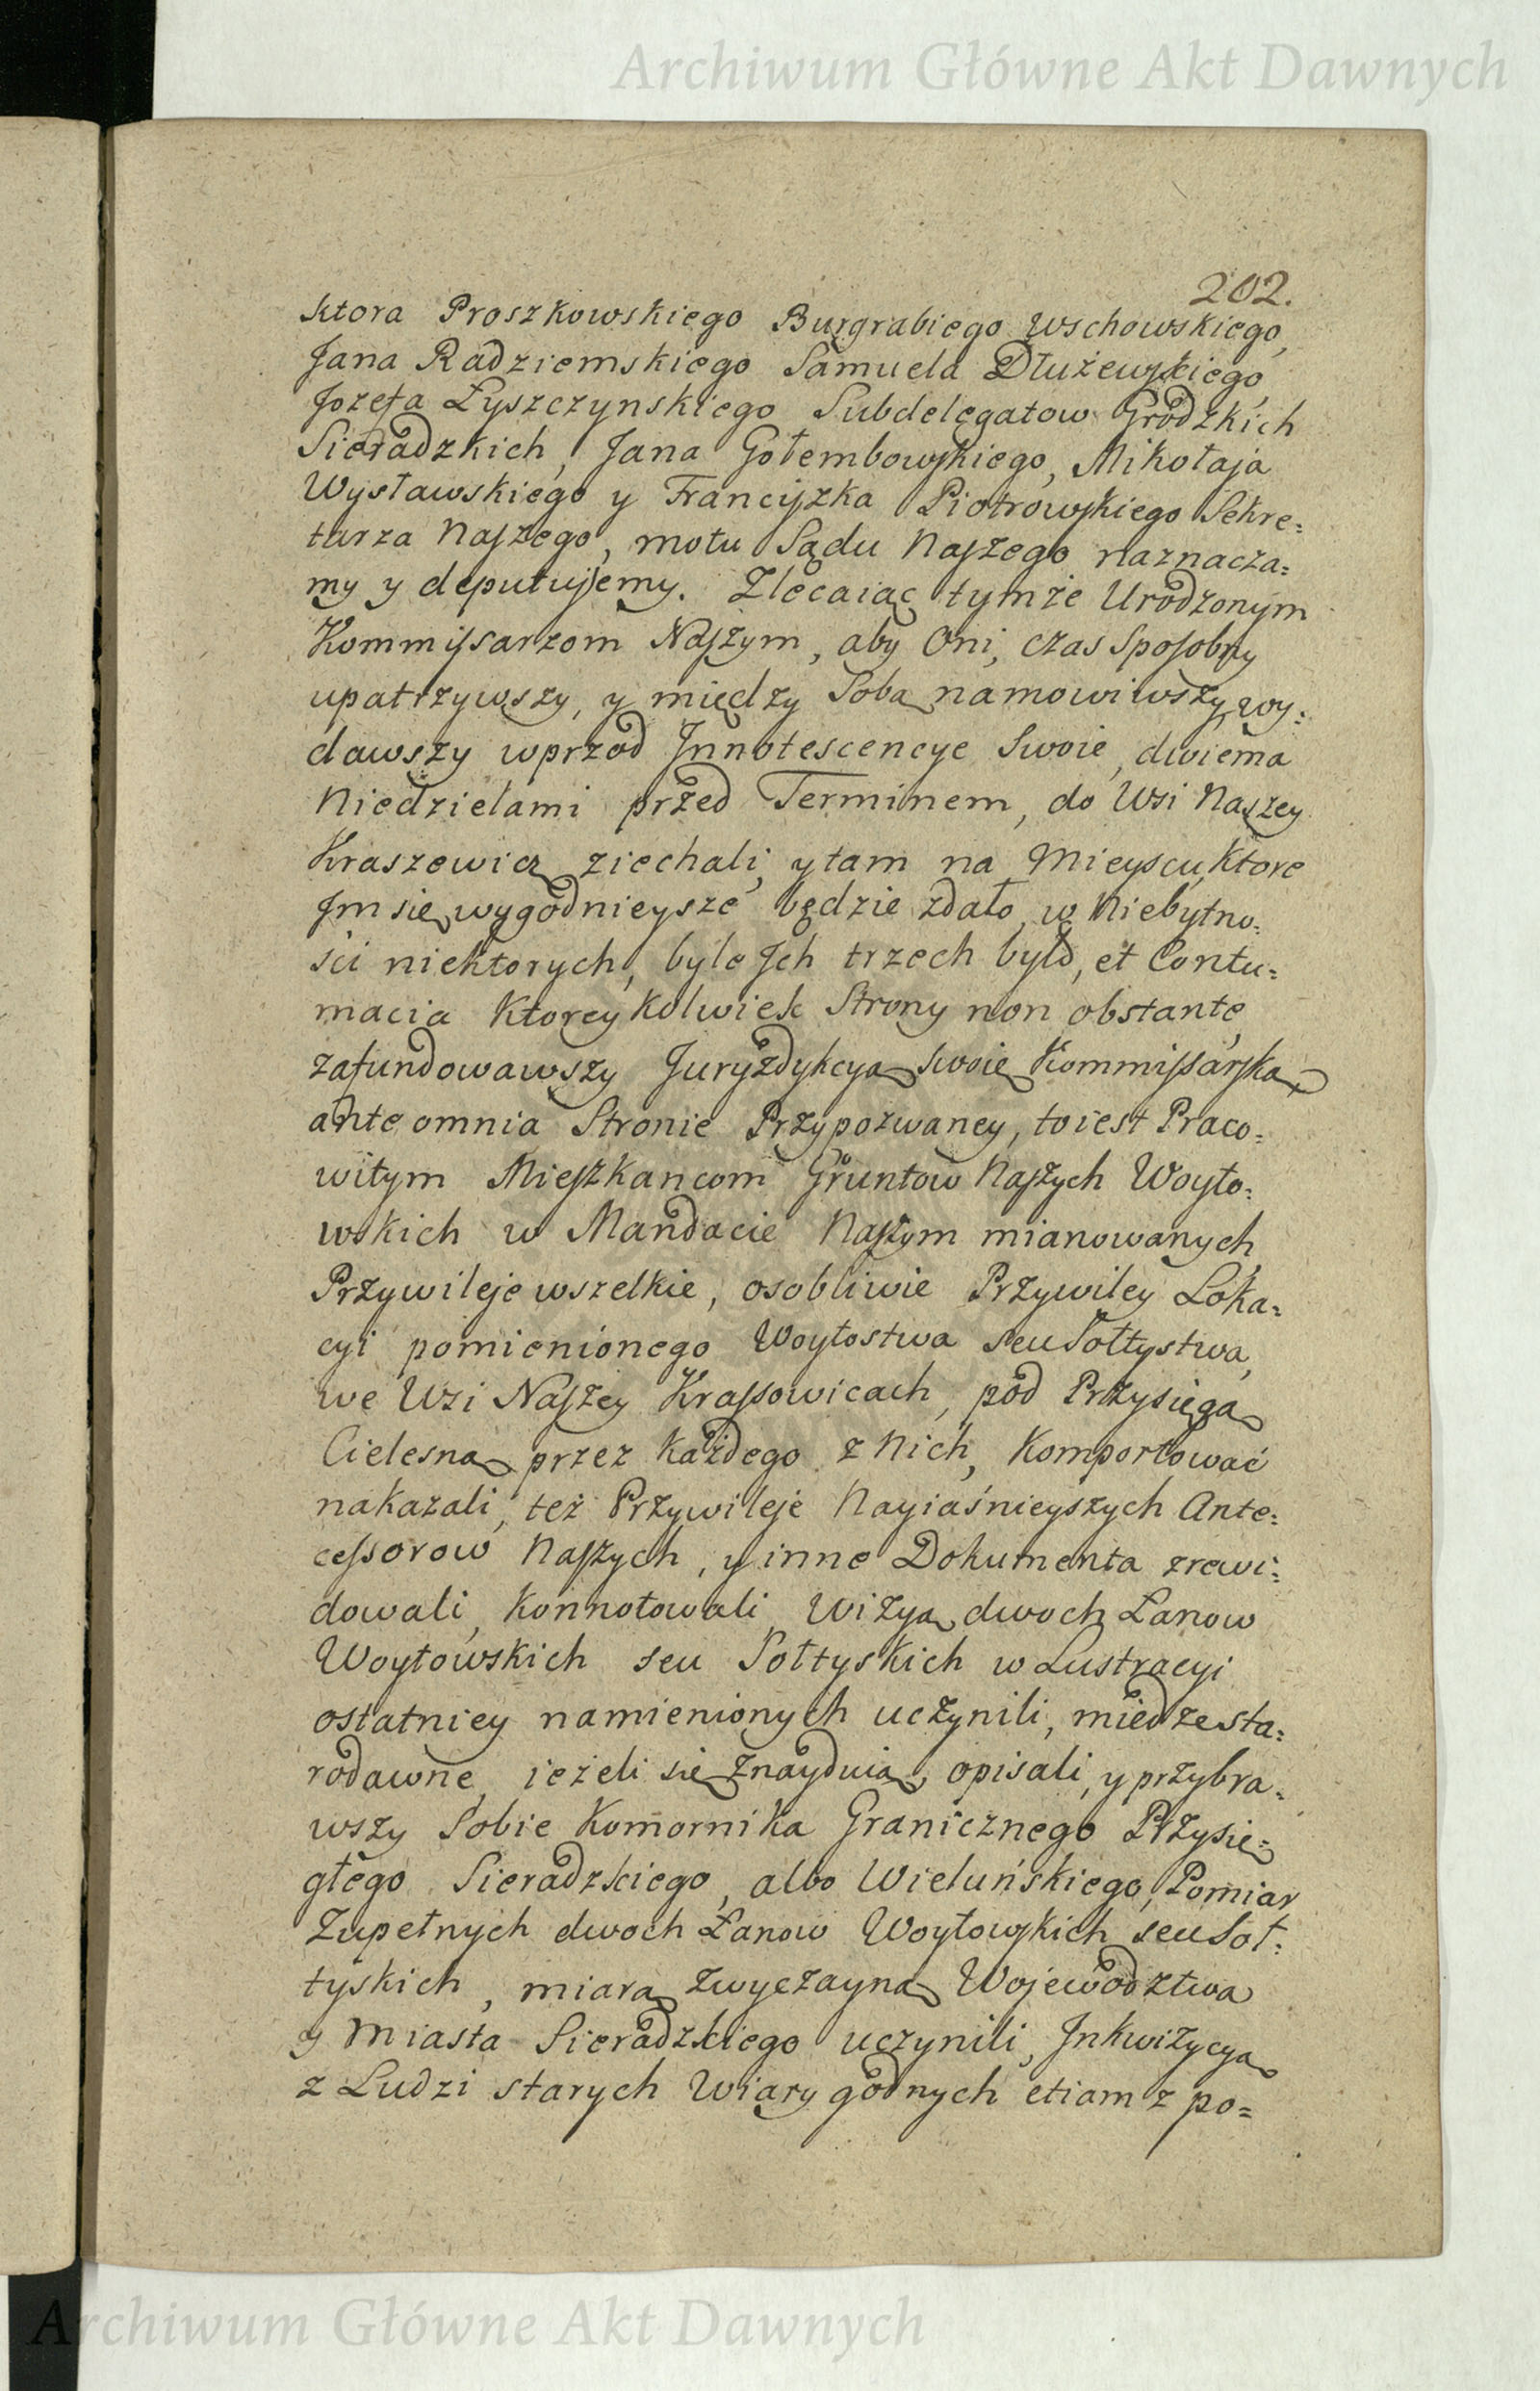 Archiwum Główne Akt Dawnych
202.
ktora Proszkowskiego Burgrabiego Wschowskiego,
Jana Radziemskiego Samuela Dłużewskiego,
Jozefa Łyszczynskiego Subdelegatow Grodzkich
Sieradzkich, Jana Gołembowskiego, Mikołaja
Wysławskiego y Franciszka Piotrowskiego Sekre=
tarza Naszego, motu Sądu Naszego naznacza=
my y deputujemy. Zlecaiąc tymże Urodzonym
Kommissarzom Naszym, aby Oni, czas Sposobny
upatrzywszy, y między Sobą namowiwszy, wy=
dawszy wprzod Jnnotescencye Swoie, dwiema
Niedzielami przed Terminem, do Wsi Naszey
Kraszewicz ziechali, y tam na Mieyscu, Ktore
Jm się wygodnieysze będzie zdało, w Niebytno=
ści niektorych, byle Jch trzech było, et Contu=
macia Ktorey kolwiek Strony non obstante,
zafundowawszy Juryzdykcyą Swoię Kommissarską
ante omnia Stronie Przypozwaney, toiest Praco=
witym Mieszkancom Gruntow Naszych Woyto=
wskich w Mandacie Naszym mianowanych,
Przywileje wszelkie, osobliwie Przywiley Loka=
cyi pomienionego Woytostwa seu Sołtystwa,
we Wsi Naszey Krassowicach, pod Przysięgą
Cielesną przez Każdego z Nich, Komportować
nakazali, też Przywileje Nayiaśnieyszych Ante=
cessorow Naszych, y inne Dokumenta zrewi=
dowali, Konnotowali, Wizyą dwoch Łanow
Woytowskich seu Sołtyskich w Lustracyi
ostatniey namienionych uczynili, miedze sta=
rodawne, ieżeli się znayduią, opisali, y przybra=
wszy Sobie Komornika Granicznego Przysię=
głego Sieradzkiego, albo Wieluńskiego, Pomiar
Zupełnych dwoch Łanow Woytowskich seu Soł=
tyskich, miarą zwyczayną Wojewodztwa
y Miasta Sieradzkiego uczynili, Jnkwizycyą
z Ludzi starych Wiary godnych etiam z po=
Archiwum Główne Akt Dawnych